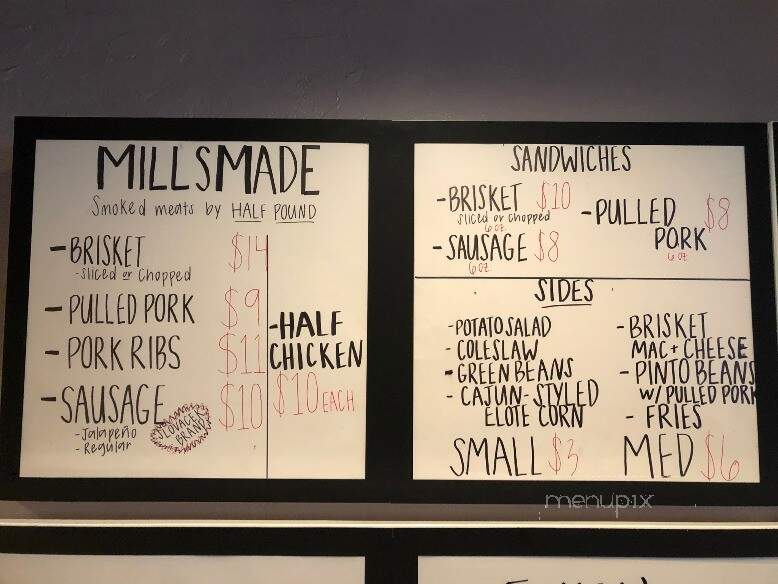 MILLSMADE
Smoked meats by HALF POUND
- BRISKET $14
- Sliced or Chopped
- PULLED PORK $9
- PORK RIBS $11
- SAUSAGE $10
- Jalapeño
- Regular
SLOVACEK
BRAND
- HALF
CHICKEN
$10 EACH
SANDWICHES
- BRISKET $10
Sliced or Chopped
6 oz
- SAUSAGE $8
6 oz
- PULLED $8
PORK
6 oz
SIDES
- POTATO SALAD
- COLESLAW
- GREEN BEANS
- CAJUN-STYLED
ELOTE CORN
- BRISKET
MAC + CHEESE
- PINTO BEANS
W/ PULLED PORK
- FRIES
SMALL $3 MED $6
menupix